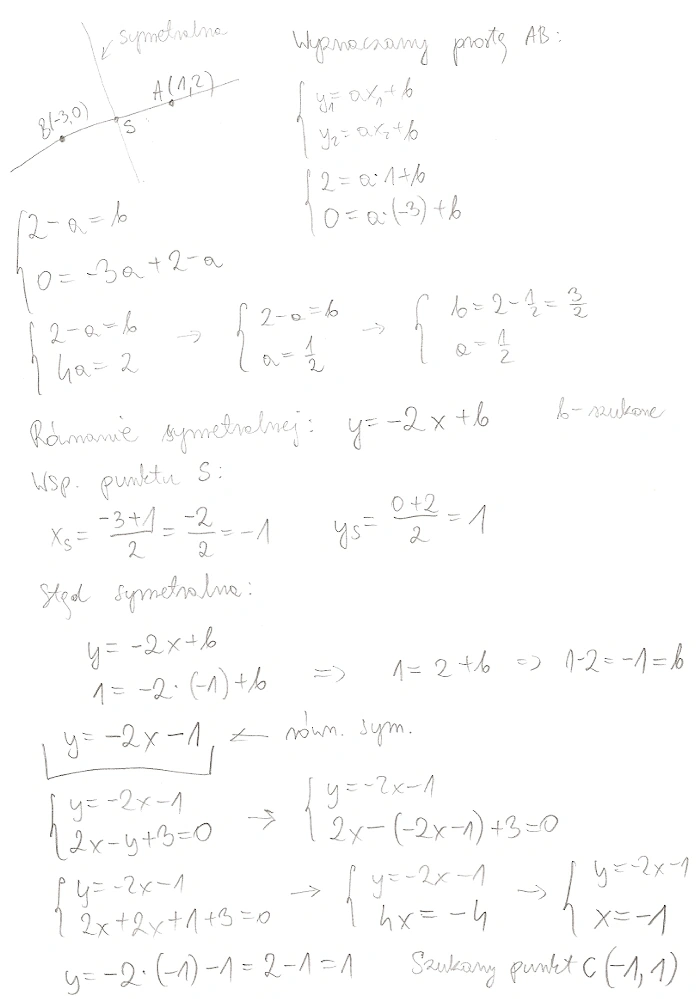 symetralna
Wyznaczamy prostą AB:
A(1,2)
B(-3,0)
S
y₁ = ax₁ + b
y₂ = ax₂ + b
2 = a·1 + b
0 = a·(-3) + b
2 - a = b
0 = -3a + 2 - a
2 - a = b → 2 - a = b → b = 2 - 1/2 = 3/2
4a = 2 a = 1/2 a = 1/2
Równanie symetralnej: y = -2x + b b - szukane
Wsp. punktu S:
x_S = (-3+1)/2 = -2/2 = -1 y_S = (0+2)/2 = 1
Stąd symetralna:
y = -2x + b
1 = -2·(-1) + b => 1 = 2 + b => 1-2 = -1 = b
y = -2x - 1 ← równ. sym.
y = -2x - 1 → y = -2x - 1
2x - y + 3 = 0 2x - (-2x - 1) + 3 = 0
y = -2x - 1 → y = -2x - 1 → y = -2x - 1
2x + 2x + 1 + 3 = 0 4x = -4 x = -1
y = -2·(-1) - 1 = 2 - 1 = 1 Szukany punkt C(-1, 1)